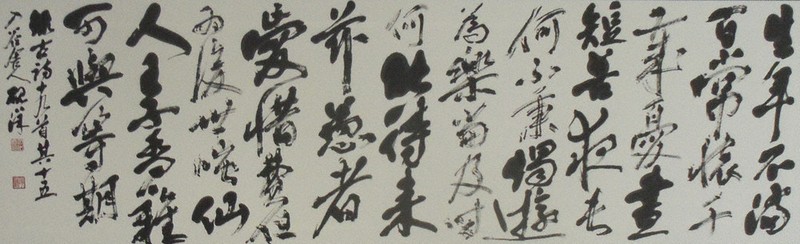 生年不滿
百常懷千
歲憂晝
短苦夜長
何不秉燭遊
為樂當及時
何能待來
茲愚者
愛惜費但
為後世嗤仙
人王子喬難
可與等期
古詩十九首其十五